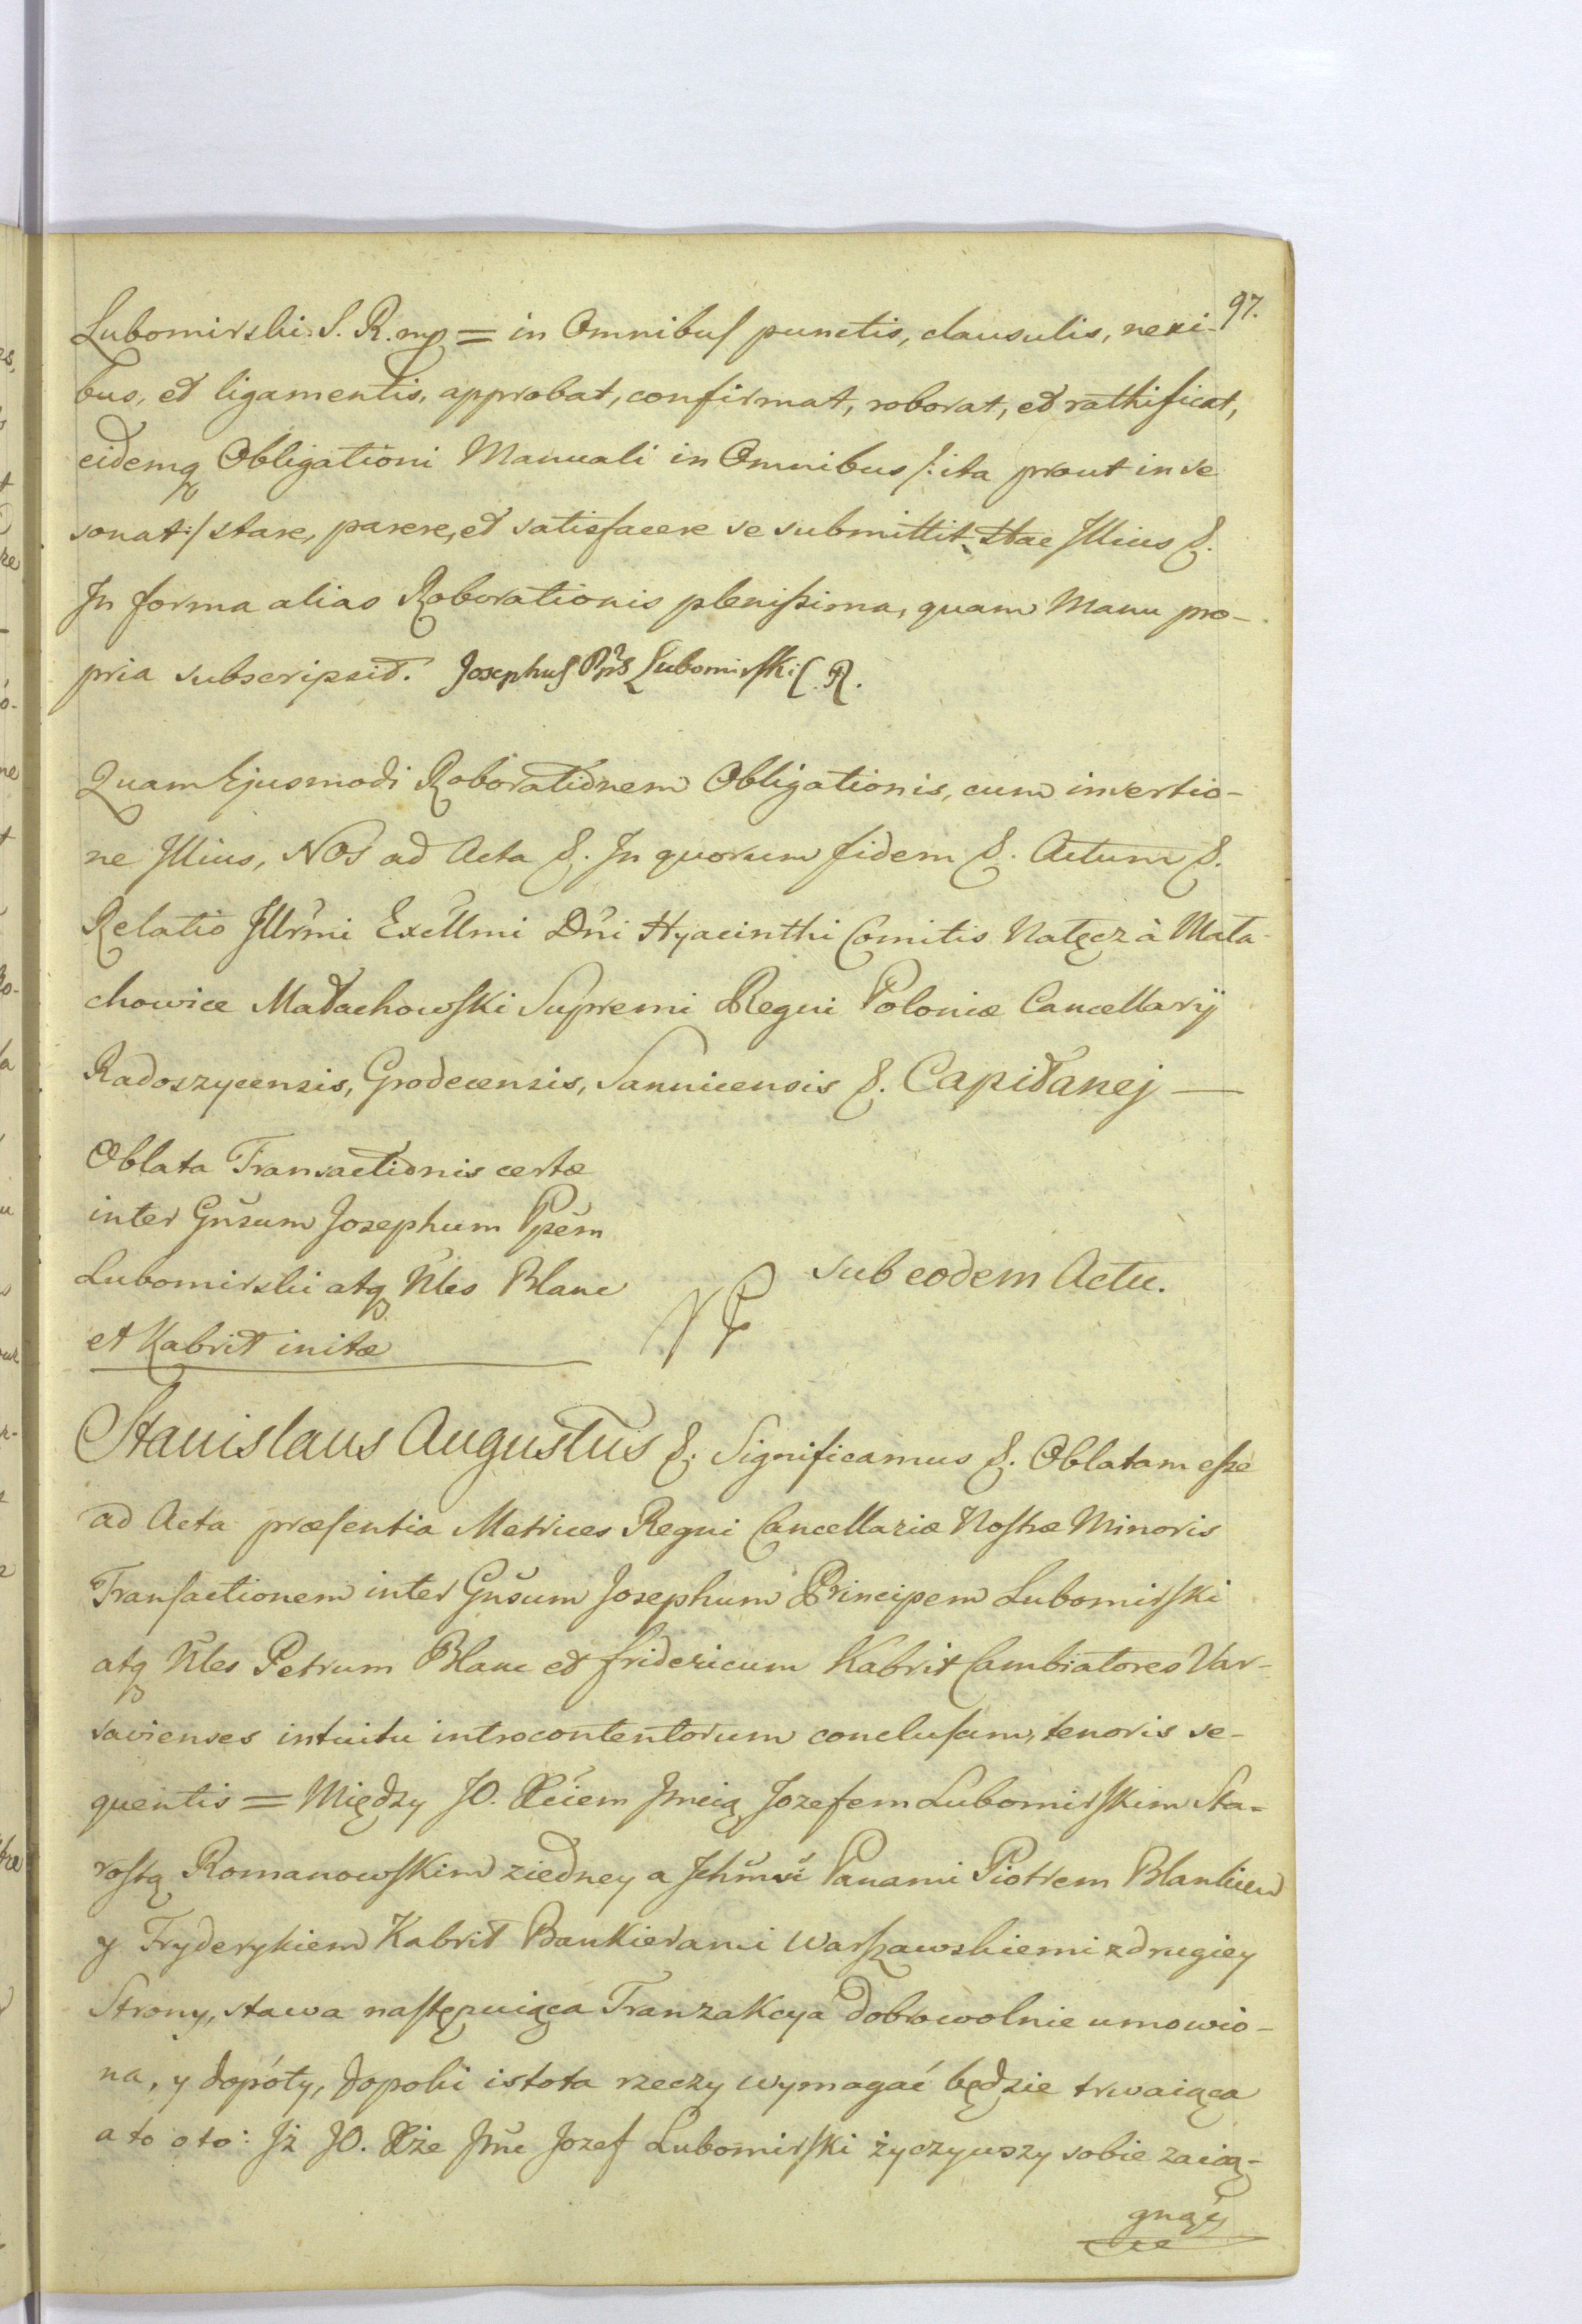 97.
Lubomirski. S. R. mp = in Omnibus punctis, clausulis, nexi-
bus, et ligamentis, approbat, confirmat, roborat, et rathificat,
eidemq Obligationi Manuali in Omnibus /: ita prout in se
sonat :/ stare, parere, et satisfacere se submittit Stae Illius &.
In forma alias Roborationis plenissima, quam Manu pro-
pria subscripsit. Josephus Pps Lubomirski S. R.
Quam Ejusmodi Roborationem Obligationis, cum insertio-
ne Illius, NOS ad Acta &. In quorum fidem &. Actum &.
Relatio Illrmi Excllmi Dni Hyacinthi Comitis Natęcz à Mała-
chowice Małachowski Supremi Regni Poloniæ Cancellarij
Radoszycensis, Grodecensis, Sannicensis &. Capitanej —
Oblata Transactionis certæ
inter Gnsum Josephum Ppem
Lubomirski atq Nles Blanc
et Kabrit initæ
sub eodem Actu.
Stanislaus Augustus &. Significamus &. Oblatam esse
ad Acta præsentia Metrices Regni Cancellariæ Nostræ Minoris
Transactionem inter Gnsum Josephum Principem Lubomirski
atq Nles Petrum Blanc et fridericum Kabrit Cambiatores Var-
savienses intuitu introcontentorum conclusam, tenoris se-
quentis = Między JO. Xciem Jmcią Jozefem Lubomirskim Sta-
rostą Romanowskim ziedney a Panami Piotrem Blankiem
y Fryderykiem Kabrit Bankierami Warszawskiemi z drugiey
Strony, stawa następuiąca Tranzakcya dobrowolnie umowio-
na, y dopóty, dopoki istota rzeczy wymagać będzie trwaiąca
a to o to: Iż JO. Xże Jmc Jozef Lubomirski życzywszy sobie zaią-
gnąć